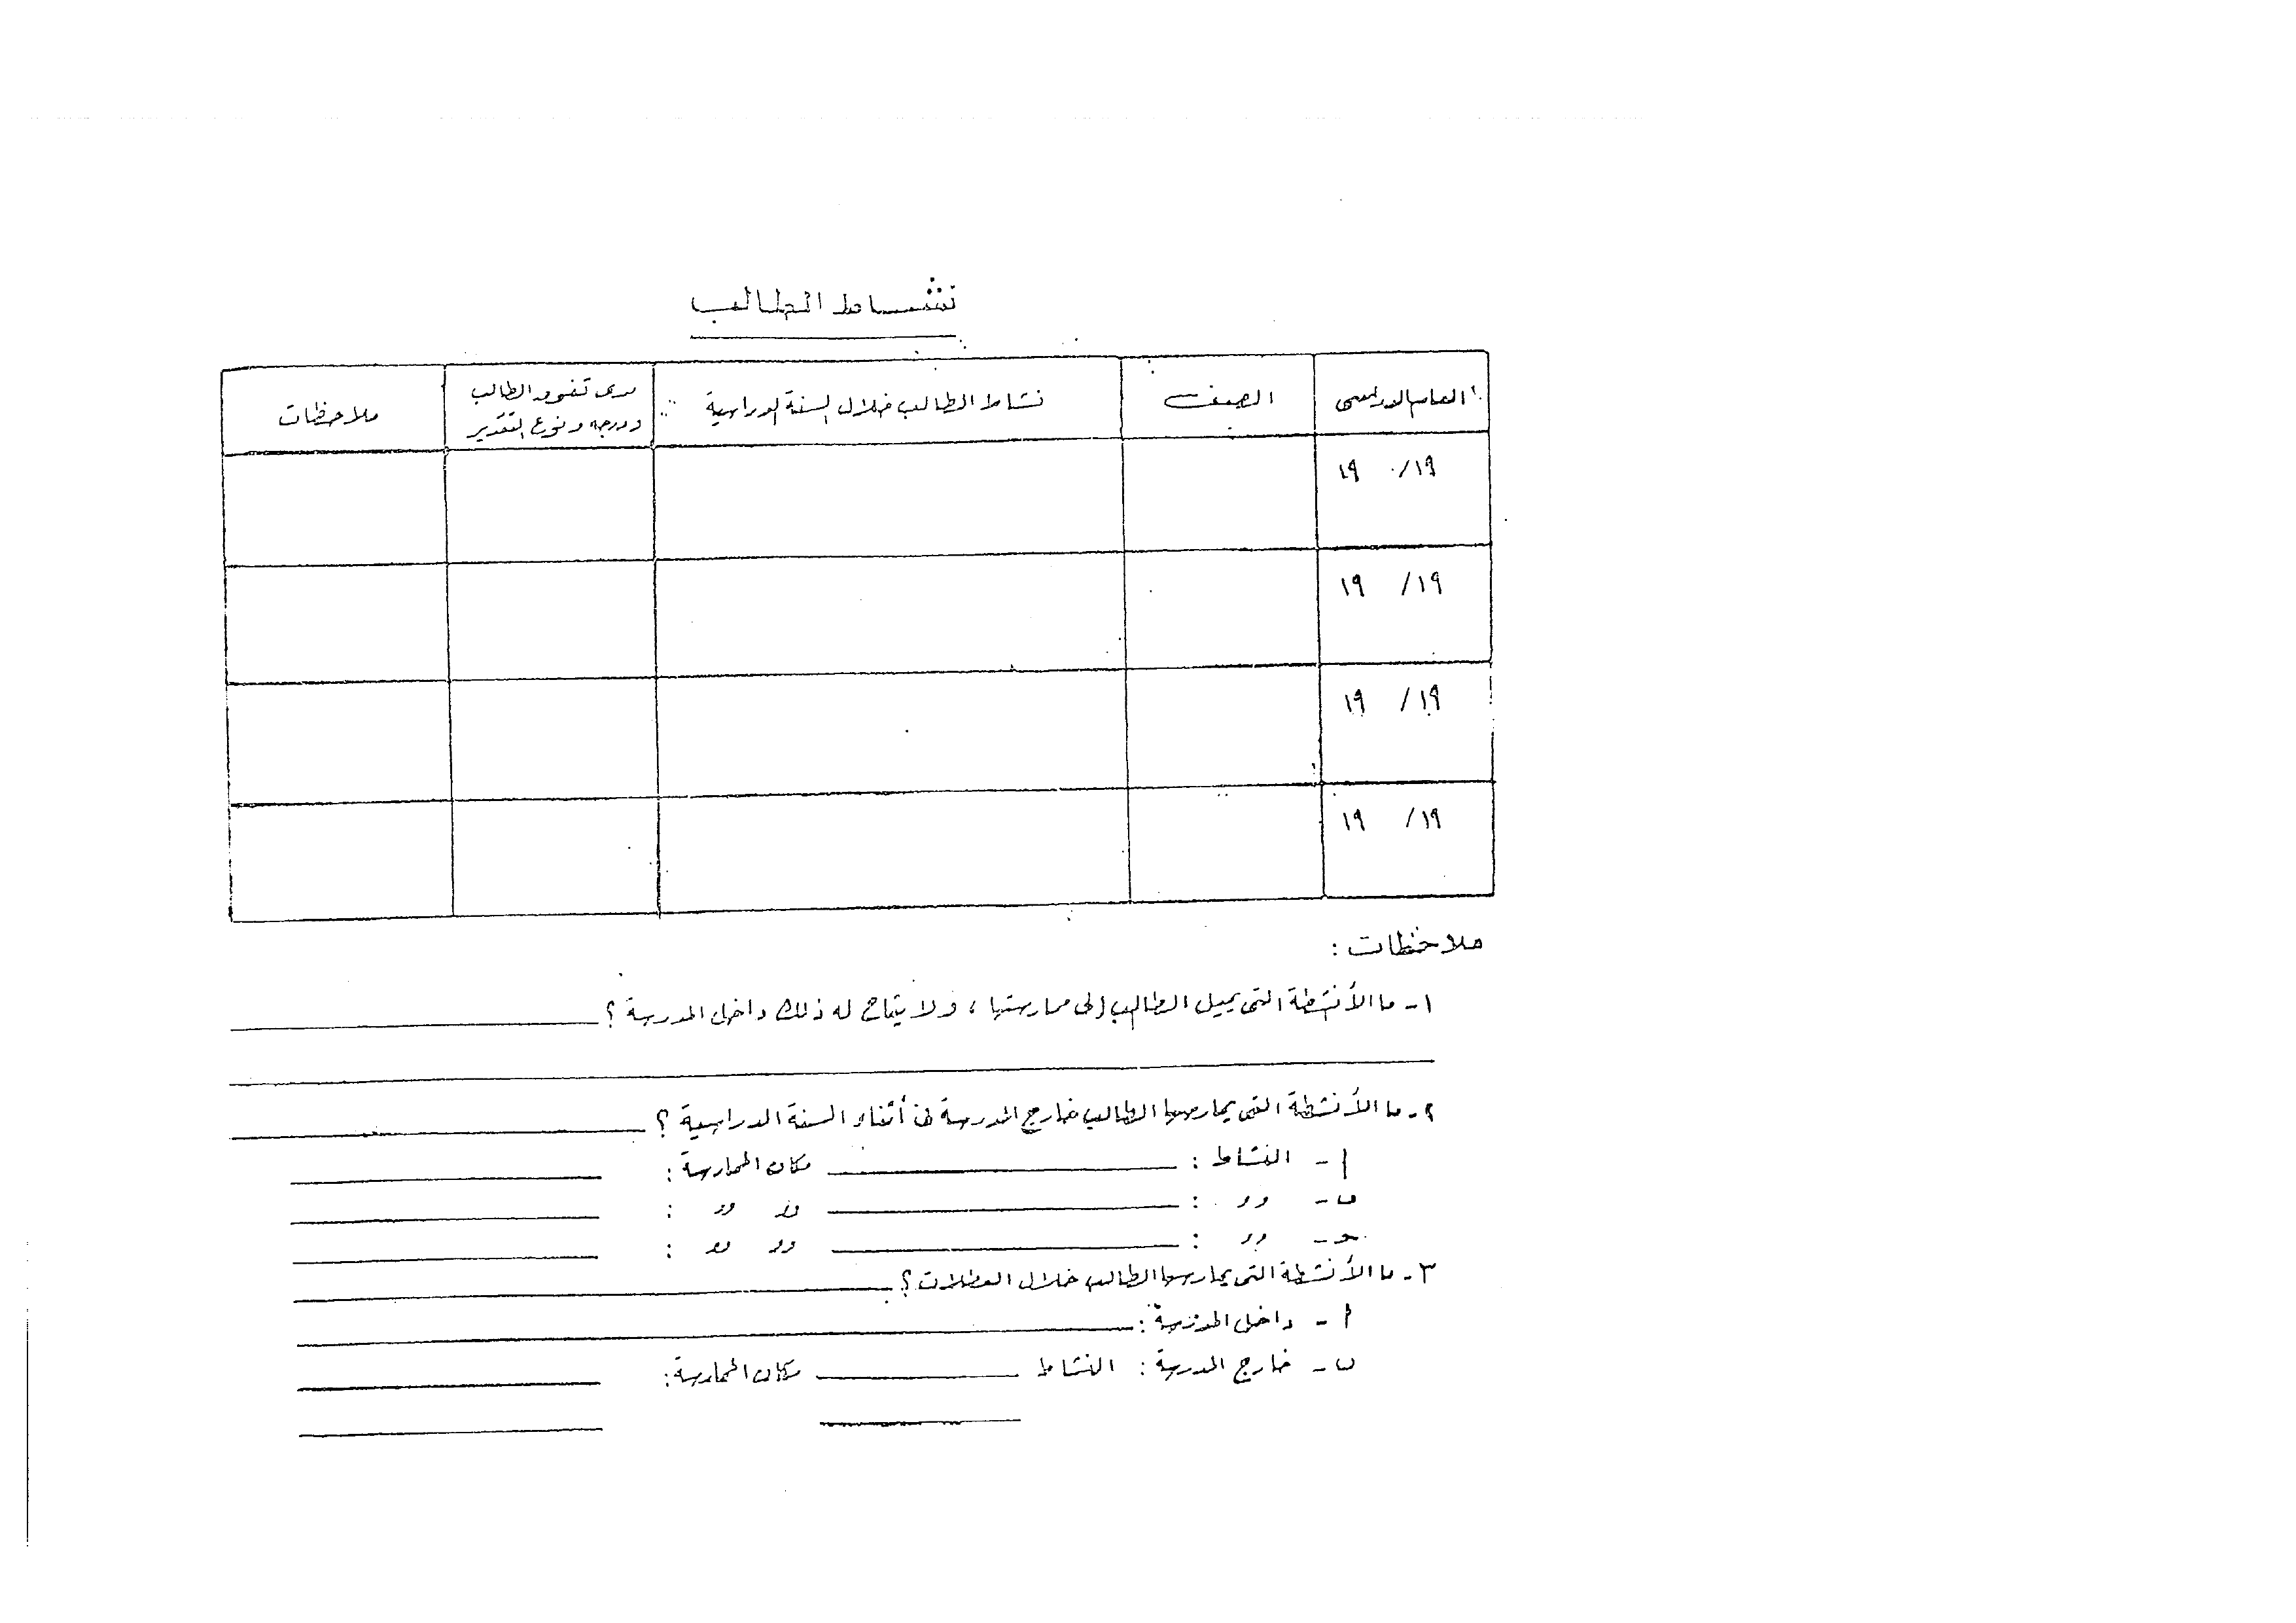 نشاط الطالب
العام الدراسى الصف نشاط الطالب خلال السنة الدراسية مدى تفوق الطالب ملاحظات
ودرجه ونوع التقدير
١٩/ ١٩
١٩/ ١٩
١٩/ ١٩
١٩/ ١٩
ملاحظات :
١- ما الأنشطة التى يميل الطالب إلى ممارستها ، ولا يتاح له ذلك داخل المدرسة ؟
٢- ما الأنشطة التى يمارسها الطالب خارج المدرسة فى أثناء السنة الدراسية ؟
أ - النشاط : مكان الممارسة :
ب - ,, : ,, ,, :
جـ - ,, : ,, ,, :
٣- ما الأنشطة التى يمارسها الطالب خلال العطلات ؟
أ - داخل المدرسة :
ب - خارج المدرسة : النشاط مكان الممارسة :